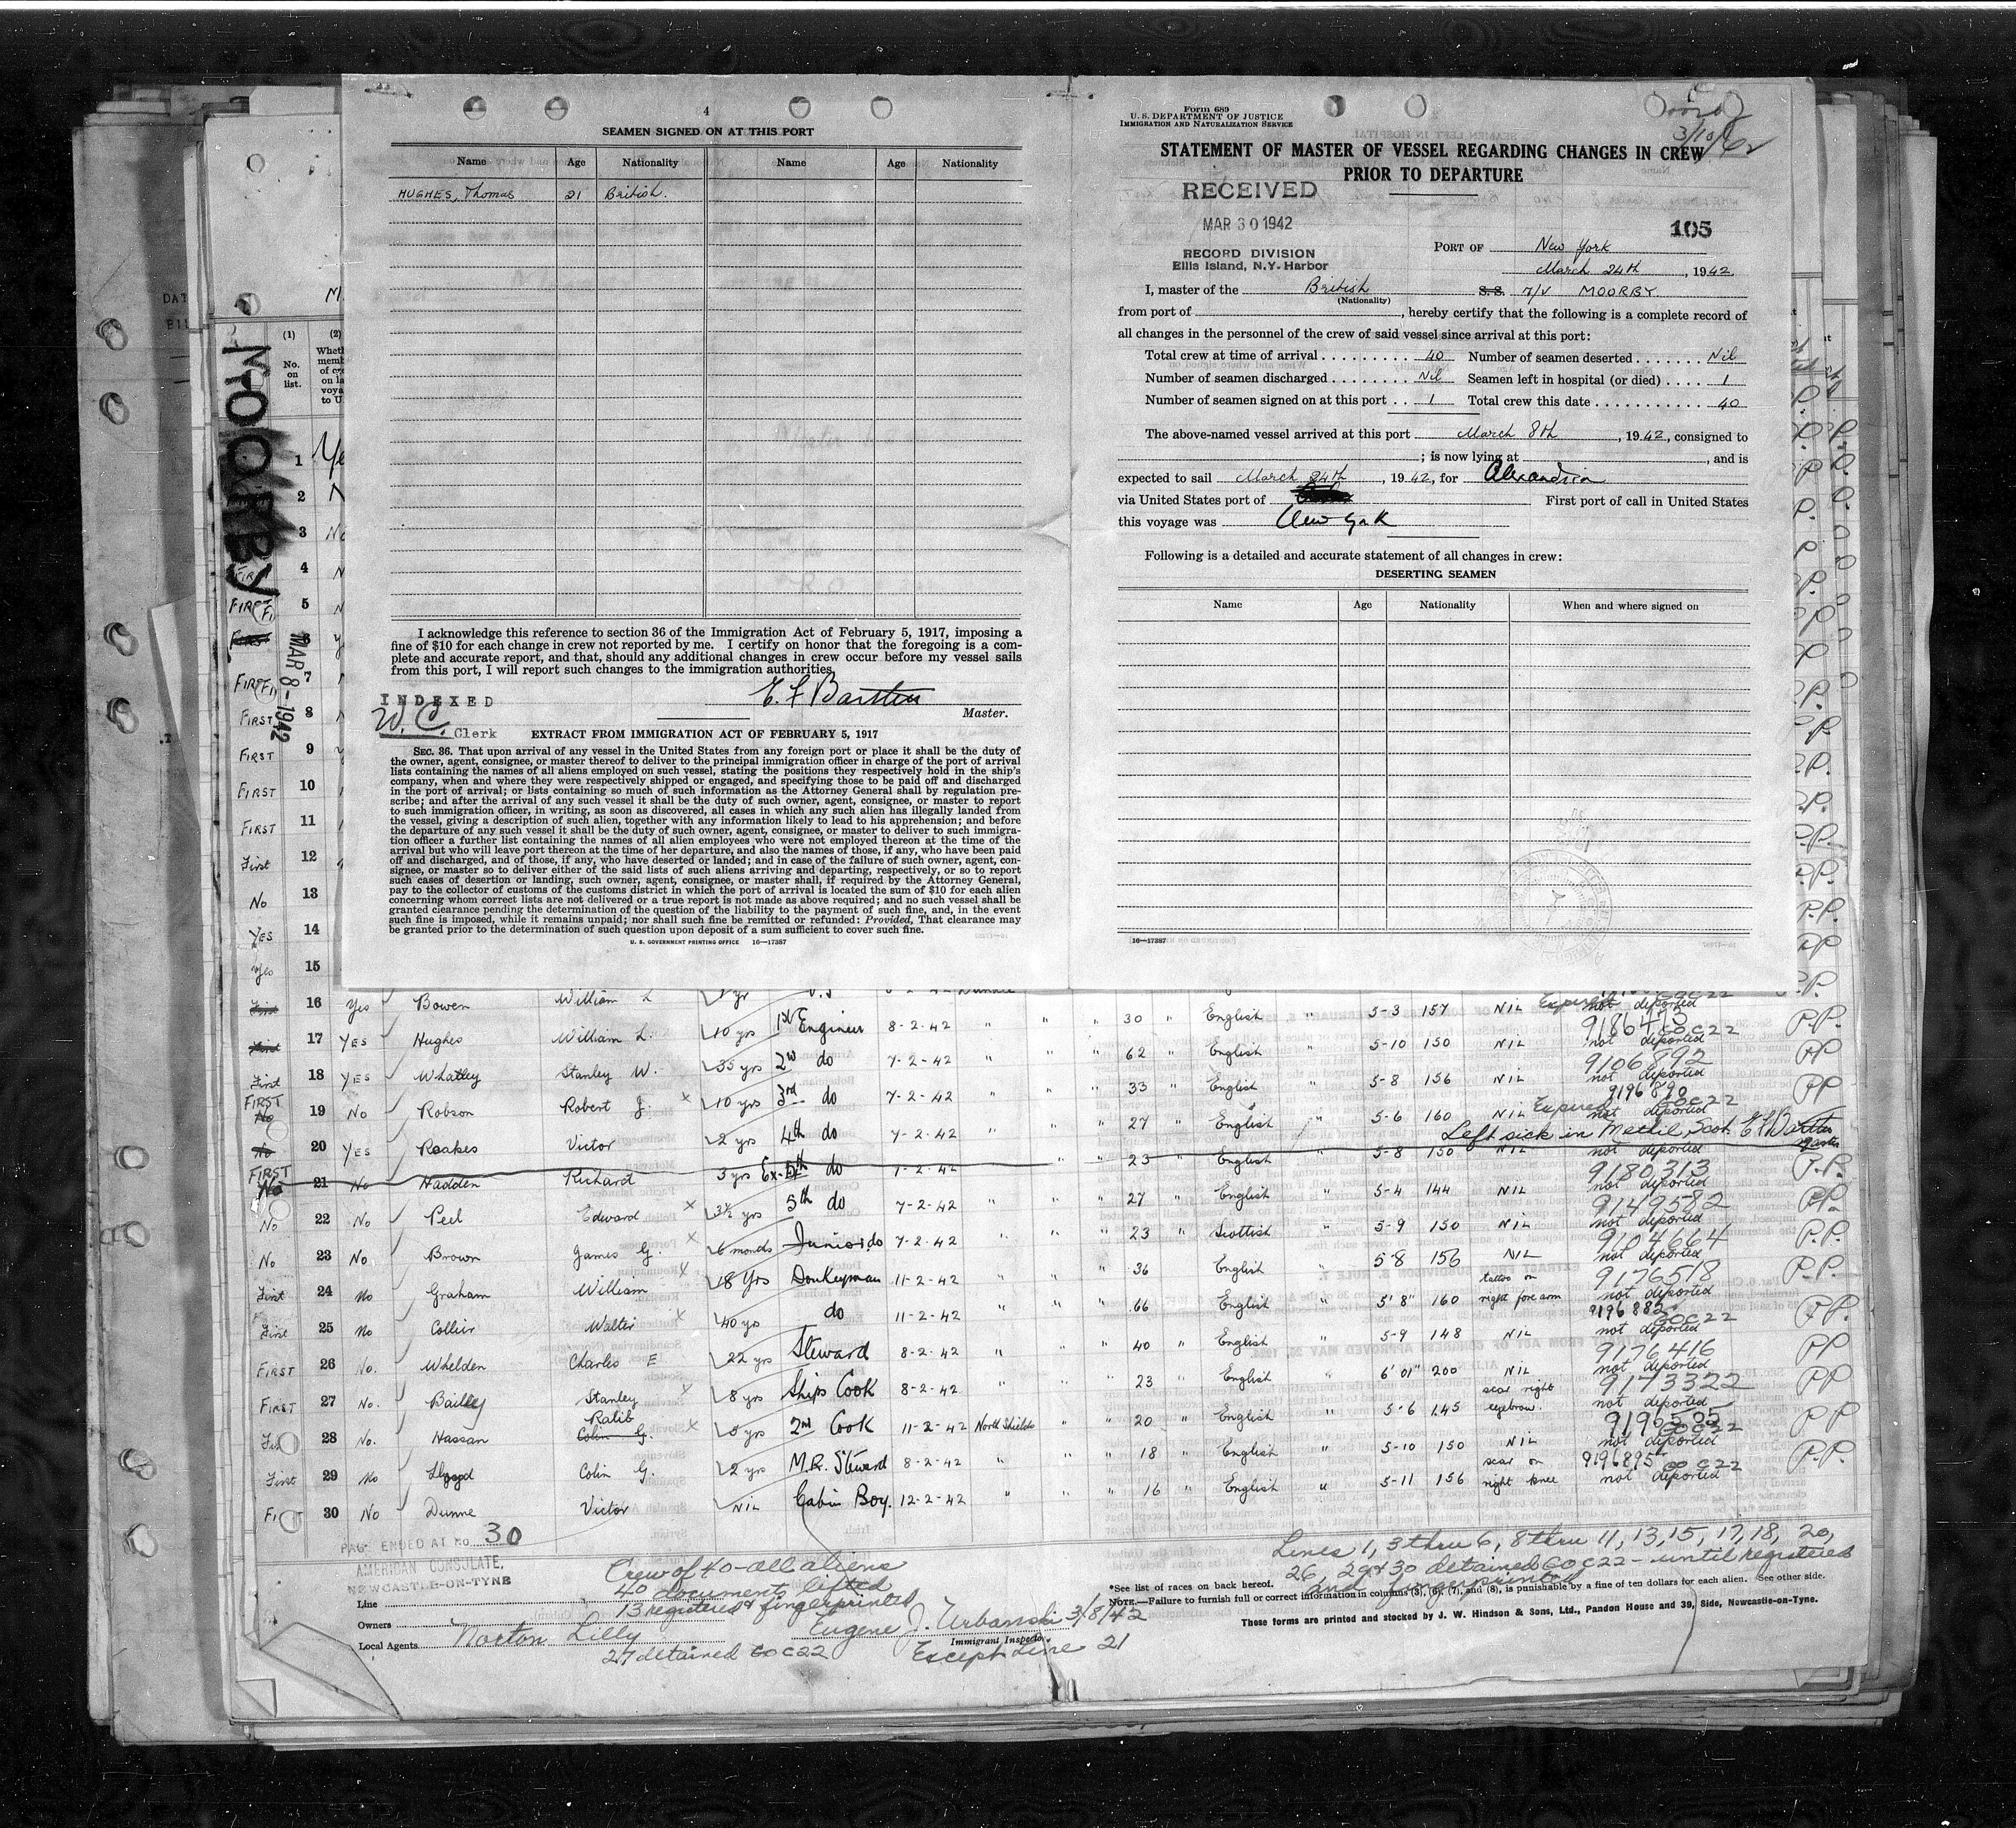 4
SEAMEN SIGNED ON AT THIS PORT
Name Age Nationality Name Age Nationality
HUGHES, Thomas 21 British.
I acknowledge this reference to section 36 of the Immigration Act of February 5, 1917, imposing a
fine of $10 for each change in crew not reported by me. I certify on honor that the foregoing is a com-
plete and accurate report, and that, should any additional changes in crew occur before my vessel sails
from this port, I will report such changes to the immigration authorities.
INDEXED
W. C. Clerk
Master.
EXTRACT FROM IMMIGRATION ACT OF FEBRUARY 5, 1917
SEC. 36. That upon arrival of any vessel in the United States from any foreign port or place it shall be the duty of
the owner, agent, consignee, or master thereof to deliver to the principal immigration officer in charge of the port of arrival
lists containing the names of all aliens employed on such vessel, stating the positions they respectively hold in the ship's
company, when and where they were respectively shipped or engaged, and specifying those to be paid off and discharged
in the port of arrival; or lists containing so much of such information as the Attorney General shall by regulation pre-
scribe; and after the arrival of any such vessel it shall be the duty of such owner, agent, consignee, or master to report
to such immigration officer, in writing, as soon as discovered, all cases in which any such alien has illegally landed from
the vessel, giving a description of such alien, together with any information likely to lead to his apprehension; and before
the departure of any such vessel it shall be the duty of such owner, agent, consignee, or master to deliver to such immigra-
tion officer a further list containing the names of all alien employees who were not employed thereon at the time of the
arrival but who will leave port thereon at the time of her departure, and also the names of those, if any, who have been paid
off and discharged, and of those, if any, who have deserted or landed; and in case of the failure of such owner, agent, con-
signee, or master so to deliver either of the said lists of such aliens arriving and departing, respectively, or so to report
such cases of desertion or landing, such owner, agent, consignee, or master shall, if required by the Attorney General,
pay to the collector of customs of the customs district in which the port of arrival is located the sum of $10 for each alien
concerning whom correct lists are not delivered or a true report is not made as above required; and no such vessel shall be
granted clearance pending the determination of the question of the liability to the payment of such fine, and, in the event
such fine is imposed, while it remains unpaid; nor shall such fine be remitted or refunded: Provided, That clearance may
be granted prior to the determination of such question upon deposit of a sum sufficient to cover such fine.
U. S. GOVERNMENT PRINTING OFFICE 16—17387
Form 689
U. S. DEPARTMENT OF JUSTICE
IMMIGRATION AND NATURALIZATION SERVICE
STATEMENT OF MASTER OF VESSEL REGARDING CHANGES IN CREW
PRIOR TO DEPARTURE
RECEIVED
MAR 30 1942
RECORD DIVISION
Ellis Island, N.Y. Harbor
105
PORT OF New York
March 24th, 1942
I, master of the British S.S. M/V MOORBY
(Nationality)
from port of , hereby certify that the following is a complete record of
all changes in the personnel of the crew of said vessel since arrival at this port:
Total crew at time of arrival 40 Number of seamen deserted Nil
Number of seamen discharged Nil Seamen left in hospital (or died) 1
Number of seamen signed on at this port 1 Total crew this date 40
The above-named vessel arrived at this port March 8th, 1942, consigned to
; is now lying at , and is
expected to sail March 24th, 1942, for Alexandria
via United States port of First port of call in United States
this voyage was New York
Following is a detailed and accurate statement of all changes in crew:
DESERTING SEAMEN
Name Age Nationality When and where signed on
16—17387
MOORBY
MAR 8-1942
(1) (2)
No. on list.
1 Ye
2 N
3 No
FIRST 4 N
FIRST 5
FIRST 6
FIRST 7
FIRST 8
FIRST 9
FIRST 10
FIRST 11
First 12
No 13
YES 14
Yes 15
First 16 Yes Bowen William L
First 17 YES Hughes William L. 10 yrs 1st Engineer 8-2-42 " " " 30 " English " 5-3 157 NIL not deported P.P.
First 18 YES Whatley Stanley W. 35 yrs 2nd do 7-2-42 " " 62 " English " 5-10 150 NIL not deported PP
FIRST No 19 No Robson Robert J. x 10 yrs 3rd do 7-2-42 " " 33 " English 5-8 156 NIL 9106892 not deported PP
No 20 YES Roakes Victor 2 yrs 4th do 7-2-42 " " 27 " English " 5-6 160 NIL Expired 9196890 not deported
Left sick in Methil, Scot.
FIRST No 21 No Hadden Richard 3 yrs Ex-5th do 7-2-42 " " 23 English 5-8 150 NIL not deported P.P.
No 22 No Peel Edward x 3½ yrs 5th do 7-2-42 " " 27 " English " 5-4 144 NIL 9180313 not deported PP.
No 23 No. Brown James G. x 6 months Junior do 7-2-42 " " 23 " Scottish " 5-9 150 NIL 9149582 not deported P.P.
First 24 No Graham William x 18 Yrs Donkeyman 11-2-42 " " 36 English " 5-8 156 NIL 9104664 not deported P.P.
First 25 No Collier Walter x 40 yrs do 11-2-42 " " 66 English " 5'8" 160 tattoo on right fore arm 9176518 not deported P.P.
FIRST 26 No. Whelden Charles E 22 yrs Steward 8-2-42 " " 40 " English " 5-9 148 NIL 9196882 not deported PP
FIRST 27 No. Bailey Stanley x 8 yrs Ships Cook 8-2-42 " " 23 English " 6'01" 200 NIL 9176416 not deported PP
28 No. Hassan Colin G. Ralib x 5 yrs 2nd Cook 11-2-42 North Shields " " 20 " English " 5-6 145 scar right eyebrow. 9173322 not deported PP
First 29 No Lloyd Colin G. 2 yrs M.R. Steward 8-2-42 " " " 18 " English " 5-10 150 NIL not deported P.P.
30 No Dunne Victor NIL Cabin Boy. 12-2-42 " " " 16 " English " 5-11 156 scar on right knee 9196895 not deported
PAGE ENDED AT No. 30
AMERICAN CONSULATE,
NEWCASTLE-ON-TYNE
Crew of 40-all aliens
40 documents lifted
13 registered & fingerprinted
Lines 1, 3 thru 6, 8 thru 11, 13, 15, 17, 18, 20,
26, 29 & 30 detained GO C22 - until registered
and fingerprinted
*See list of races on back hereof.
NOTE.—Failure to furnish full or correct information in columns (3), (6), (7), and (8), is punishable by a fine of ten dollars for each alien. See other side.
These forms are printed and stocked by J. W. Hindson & Sons, Ltd., Pandon House and 39, Side, Newcastle-on-Tyne.
Line
Owners Eugene J. Urbanski 3/8/42
Local Agents Norton Lilly Immigrant Inspector.
27 detained GO C22 Except Line 21